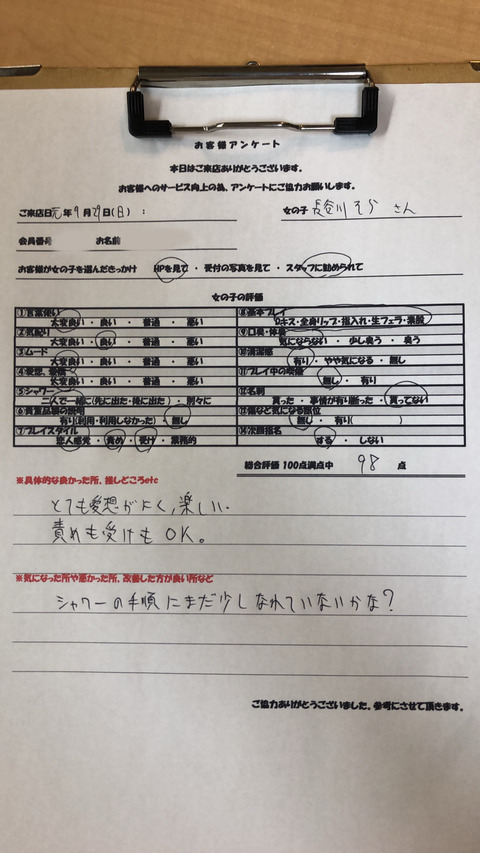 お客様アンケート
本日はご来店ありがとうございます。
お客様へのサービス向上の為、アンケートにご協力お願いします。
ご来店日 元年 9月 29日(日) :
女の子 長谷川 そら さん
会員番号 お名前
お客様が女の子を選んだきっかけ HPを見て ・ 受付の写真を見て ・ スタッフに勧められて
女の子の評価
①言葉使い
大変良い ・ 良い ・ 普通 ・ 悪い
②気配り
大変良い ・ 良い ・ 普通 ・ 悪い
③ムード
大変良い ・ 良い ・ 普通 ・ 悪い
④愛想、接客
大変良い ・ 良い ・ 普通 ・ 悪い
⑤シャワー
二人で一緒に(先に出た・後に出た) ・ 別々に
⑥貴重品袋の説明
有り(利用・利用しなかった) ・ 無し
⑦プレイスタイル
恋人感覚 ・ 責め ・ 受け ・ 業務的
⑧基本プレイ
Dキス・全身リップ・指入れ・生フェラ・素股
⑨口臭・体臭
気にならない ・ 少し臭う ・ 臭う
⑩清潔感
有り ・ やや気になる ・ 無し
⑪プレイ中の喫煙
無し ・ 有り
⑫名刺
貰った ・ 事情が有り断った ・ 貰ってない
⑬傷など気になる部位
無し ・ 有り( )
⑭次回指名
する ・ しない
総合評価 100点満点中 98 点
※具体的な良かった所、推しどころetc
とても愛想がよく、楽しい。
責めも受けもOK。
※気になった所や悪かった所、改善した方が良い所など
シャワーの手順にまだ少しなれていないかな?
ご協力ありがとうございました。参考にさせて頂きます。